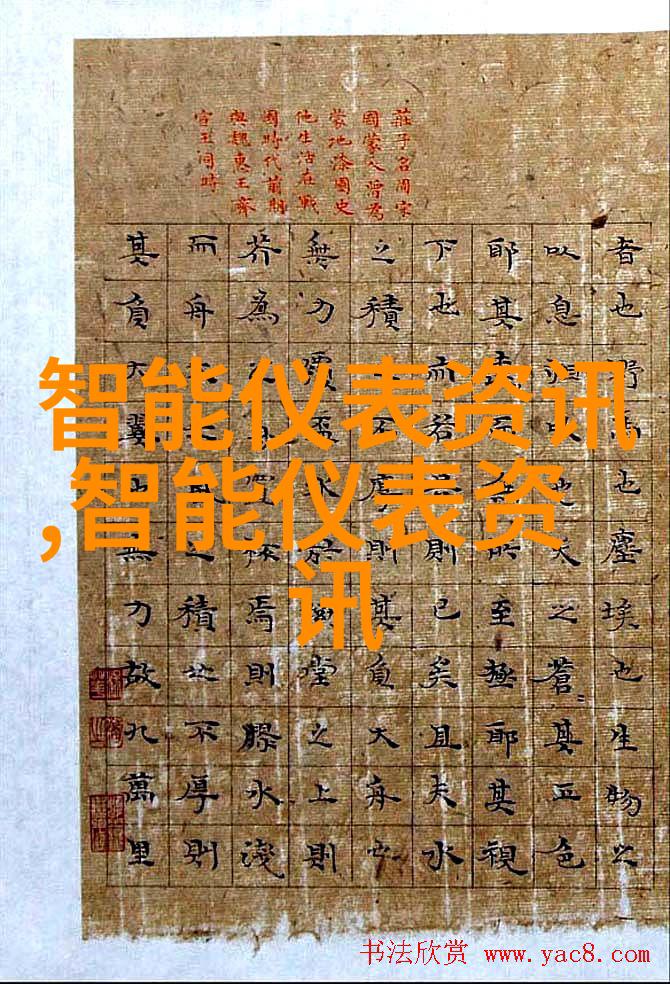 莊子名周宋
國蒙人曾為
蒙地漆園史
他生活在戰
國時代前期
與魏惠王齊
宣王同時
者也野馬也塵埃也生物之
以息相吹也天之蒼〻其正色
耶其遠而無所至極耶其視
下也而若是則已矣且夫水
之積也不厚則其負大舟也
無力覆盃水於坳堂之上則
芥為之舟置杯焉則膠水淺
而舟大也風之積也不厚則
其負大翼也無力故九萬里
智能仪表资讯
,智能仪表资
讯
书法欣赏 www.yac8.com